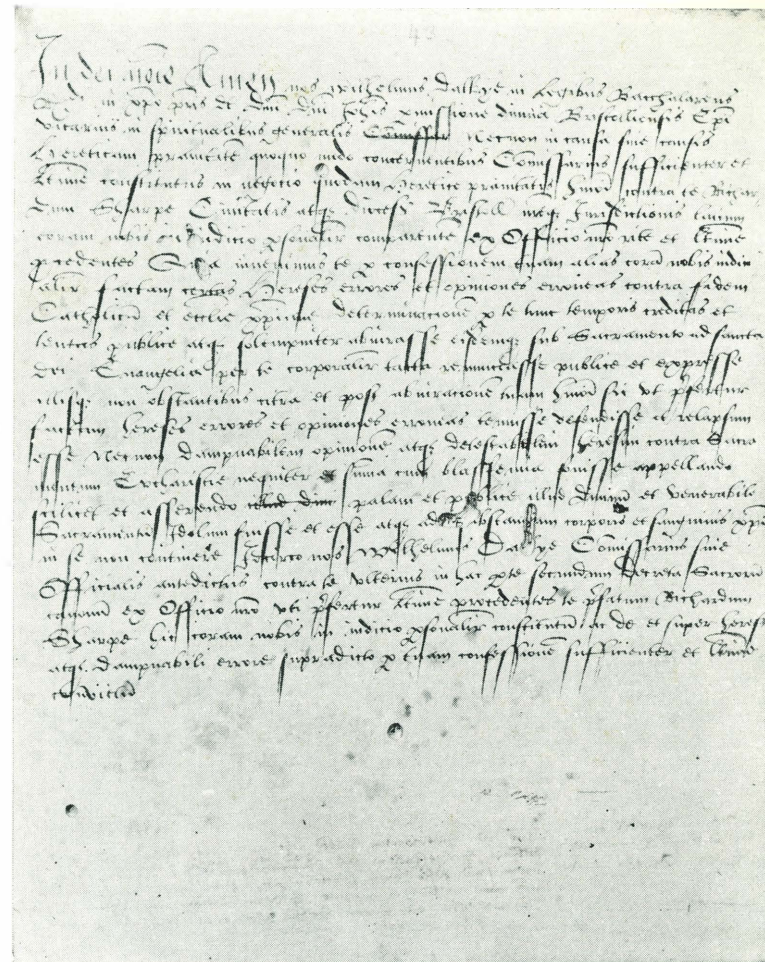 In dei noie Amen nos Willhelmus Dalbye in Legibus Bacchalareus
in xpo pris et dni dni Johis pmissione divina Bristolliensis Epi
vicarius in spiritualibus generalis Comissar Necnon in causa sive causis
hereticam pravitate quoquo modo concernentibus Comissarius sufficienter et
ltime constitutus in negotio quodam heretice pravitatis hmoi contra te Richar
dum Sharpe Civitatis atqz dioces Bristoll nreqz Jurisdictionis laicum
coram nobis in Judicio psonalir comparente ex Officio nro rite et ltime
procedentes Quia invenimus te p confessionem tuam alias cora nobis indici
alir factam certas hereses errores et opiniones erroneas contra fidem
Catholicam et ecclie determinacione p te tunc temporis creditas et
tentas publice atqz solempniter abiurasse eisdemqz sub Sacramento ad sancta
dei Evangelia per te corporalir tacta renunciasse publice et expresse
illisqz non obstantibus citra et post abiuracione tuam hmoi sic vt pfertur
factam hereses errores et opiniones erroneas tenuisse defendisse ac relapsum
esse Necnon dampnabilem opinione atqz detestabilem heresim contra Sacra
mentum Eucharistie nequiter et suma cum blasfemia appellando
scilicet et asserendo palam et publice illud divinu et venerabile
Sacramentu Idolum fuisse et esse atqz substantiam corporis et sanguinis xpi
in se non continere Idcirco nos Willhelmus Dalbye Comissarius sive
Officialis antedictus contra te vlterius in hac pte secundum decreta Sacroru
canonu ex Officio nro vti pfertur ltime procedentes te pfatum Richardum
Sharpe hic coram nobis in iudicio psonalir constitutu ac de et super heresi
atqz dampnabili errore supradicto p tuam confessione sufficienter et ltime
convictu